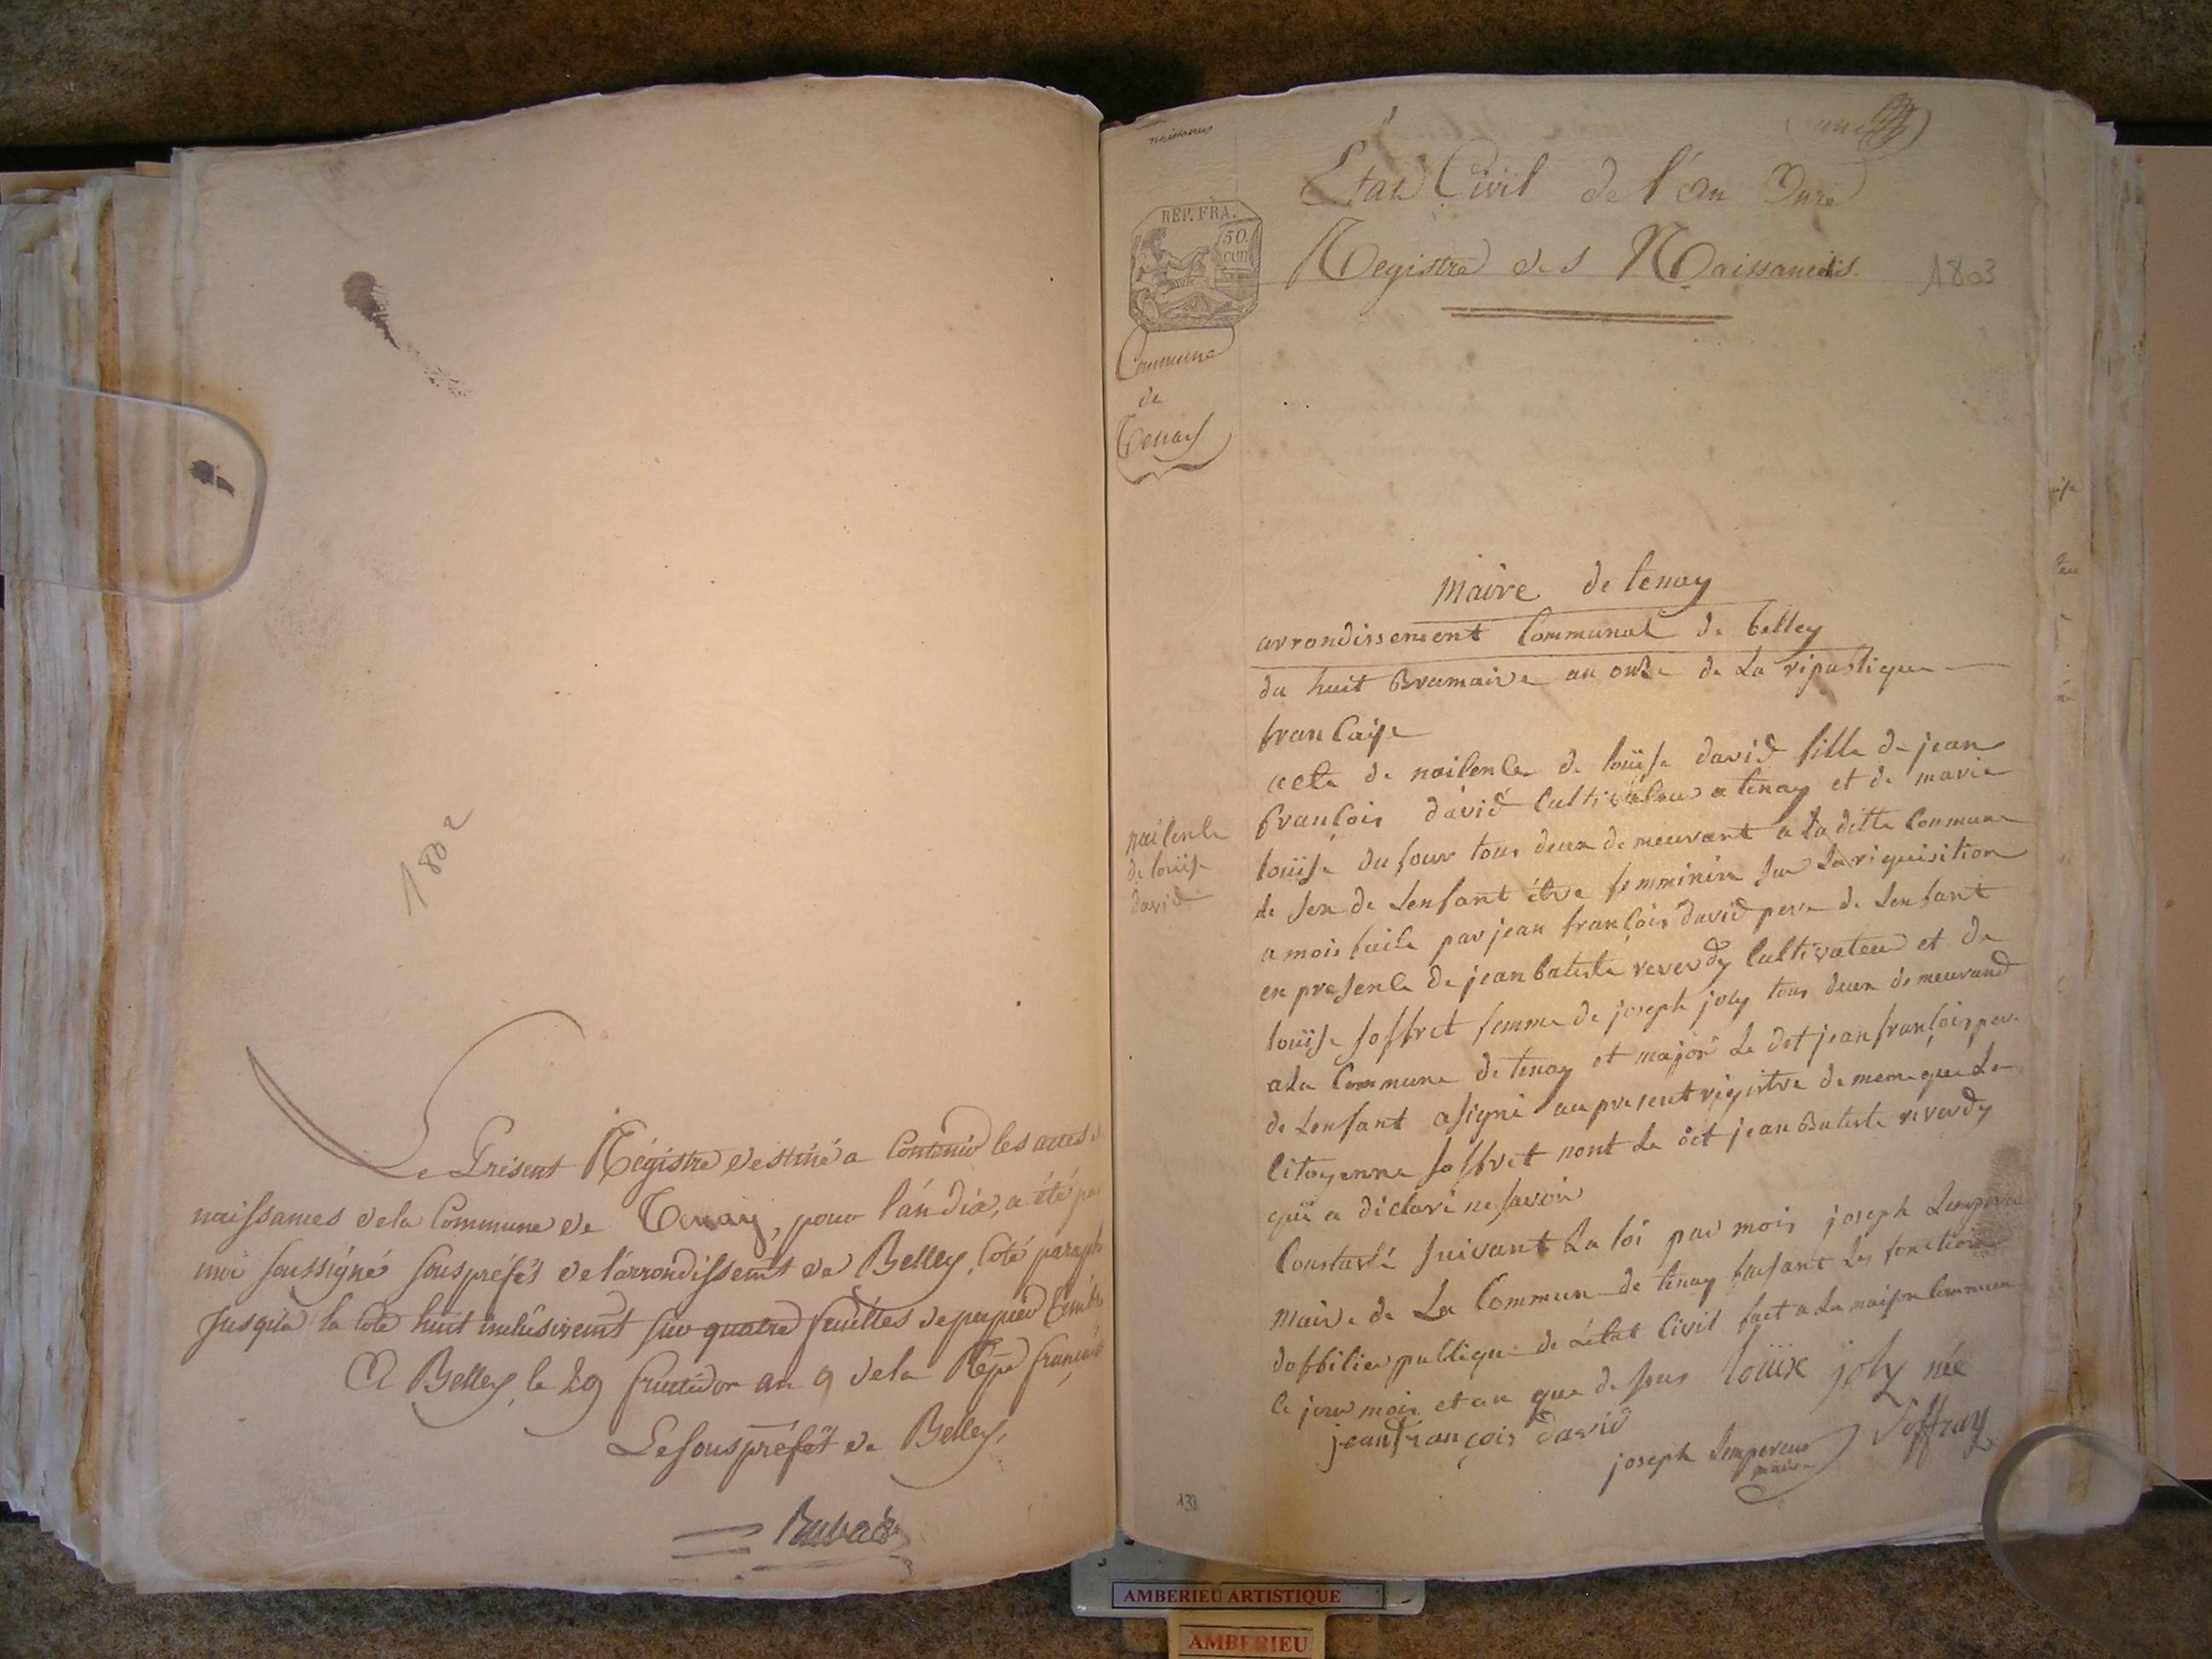 1802
Le Présent Régistre destiné a Contenir les actes d
naissances de la Commune de Tenay, pour l'an dix, a été pa
moi soussigné souspréfêt de l'arrondissemt de Belley, Coté paraph
Jusqu'à la Cote huit inclusivemt sur quatre feuilles de papier timbr
A Belley, le 29 fructidor an 9 de la Rép. française
Le souspréfêt de Belley,
naissances
État Civil de l'an Onze
Registre des Naissances
1803
REP. FRA.
50.
cen
Commune
de
Tenay
Maire de tenay
arrondissement Communal de belley
du huit Brumaire an onze de La république
francaise
acte de naisence de loüise david fille de jean
françois david cultivateur a tenay et de marie
loüise du four tous deux demeurant a La ditte commune
le sex de Lenfant être femminin sur La riquisition
a mois faite par jean françois david pere de Lenfant
en presence de jean batiste reverdy cultivateur et de
loüise soffret femme de joseph joly tous deux demeurand
a La Commune de tenay et major Le dit jean françois pere
de Lenfant a signé au present régistre de meme que La
citoyenne soffret nont Le dit jean Batiste reverdy
qui a déclaré ne savoir
Constaté suivant La loi par mois joseph Lempereur
maire de La Commune de tenay faisant Les fonction
dofficier publique de Létat Civil fait a La maison commun
le jour mois et an que de sous
naisence
de loüise
david
loüise joly née
Soffray
jean françois david
joseph Lempereur
maire
132
AMBERIEU ARTISTIQUE
AMBERIEU